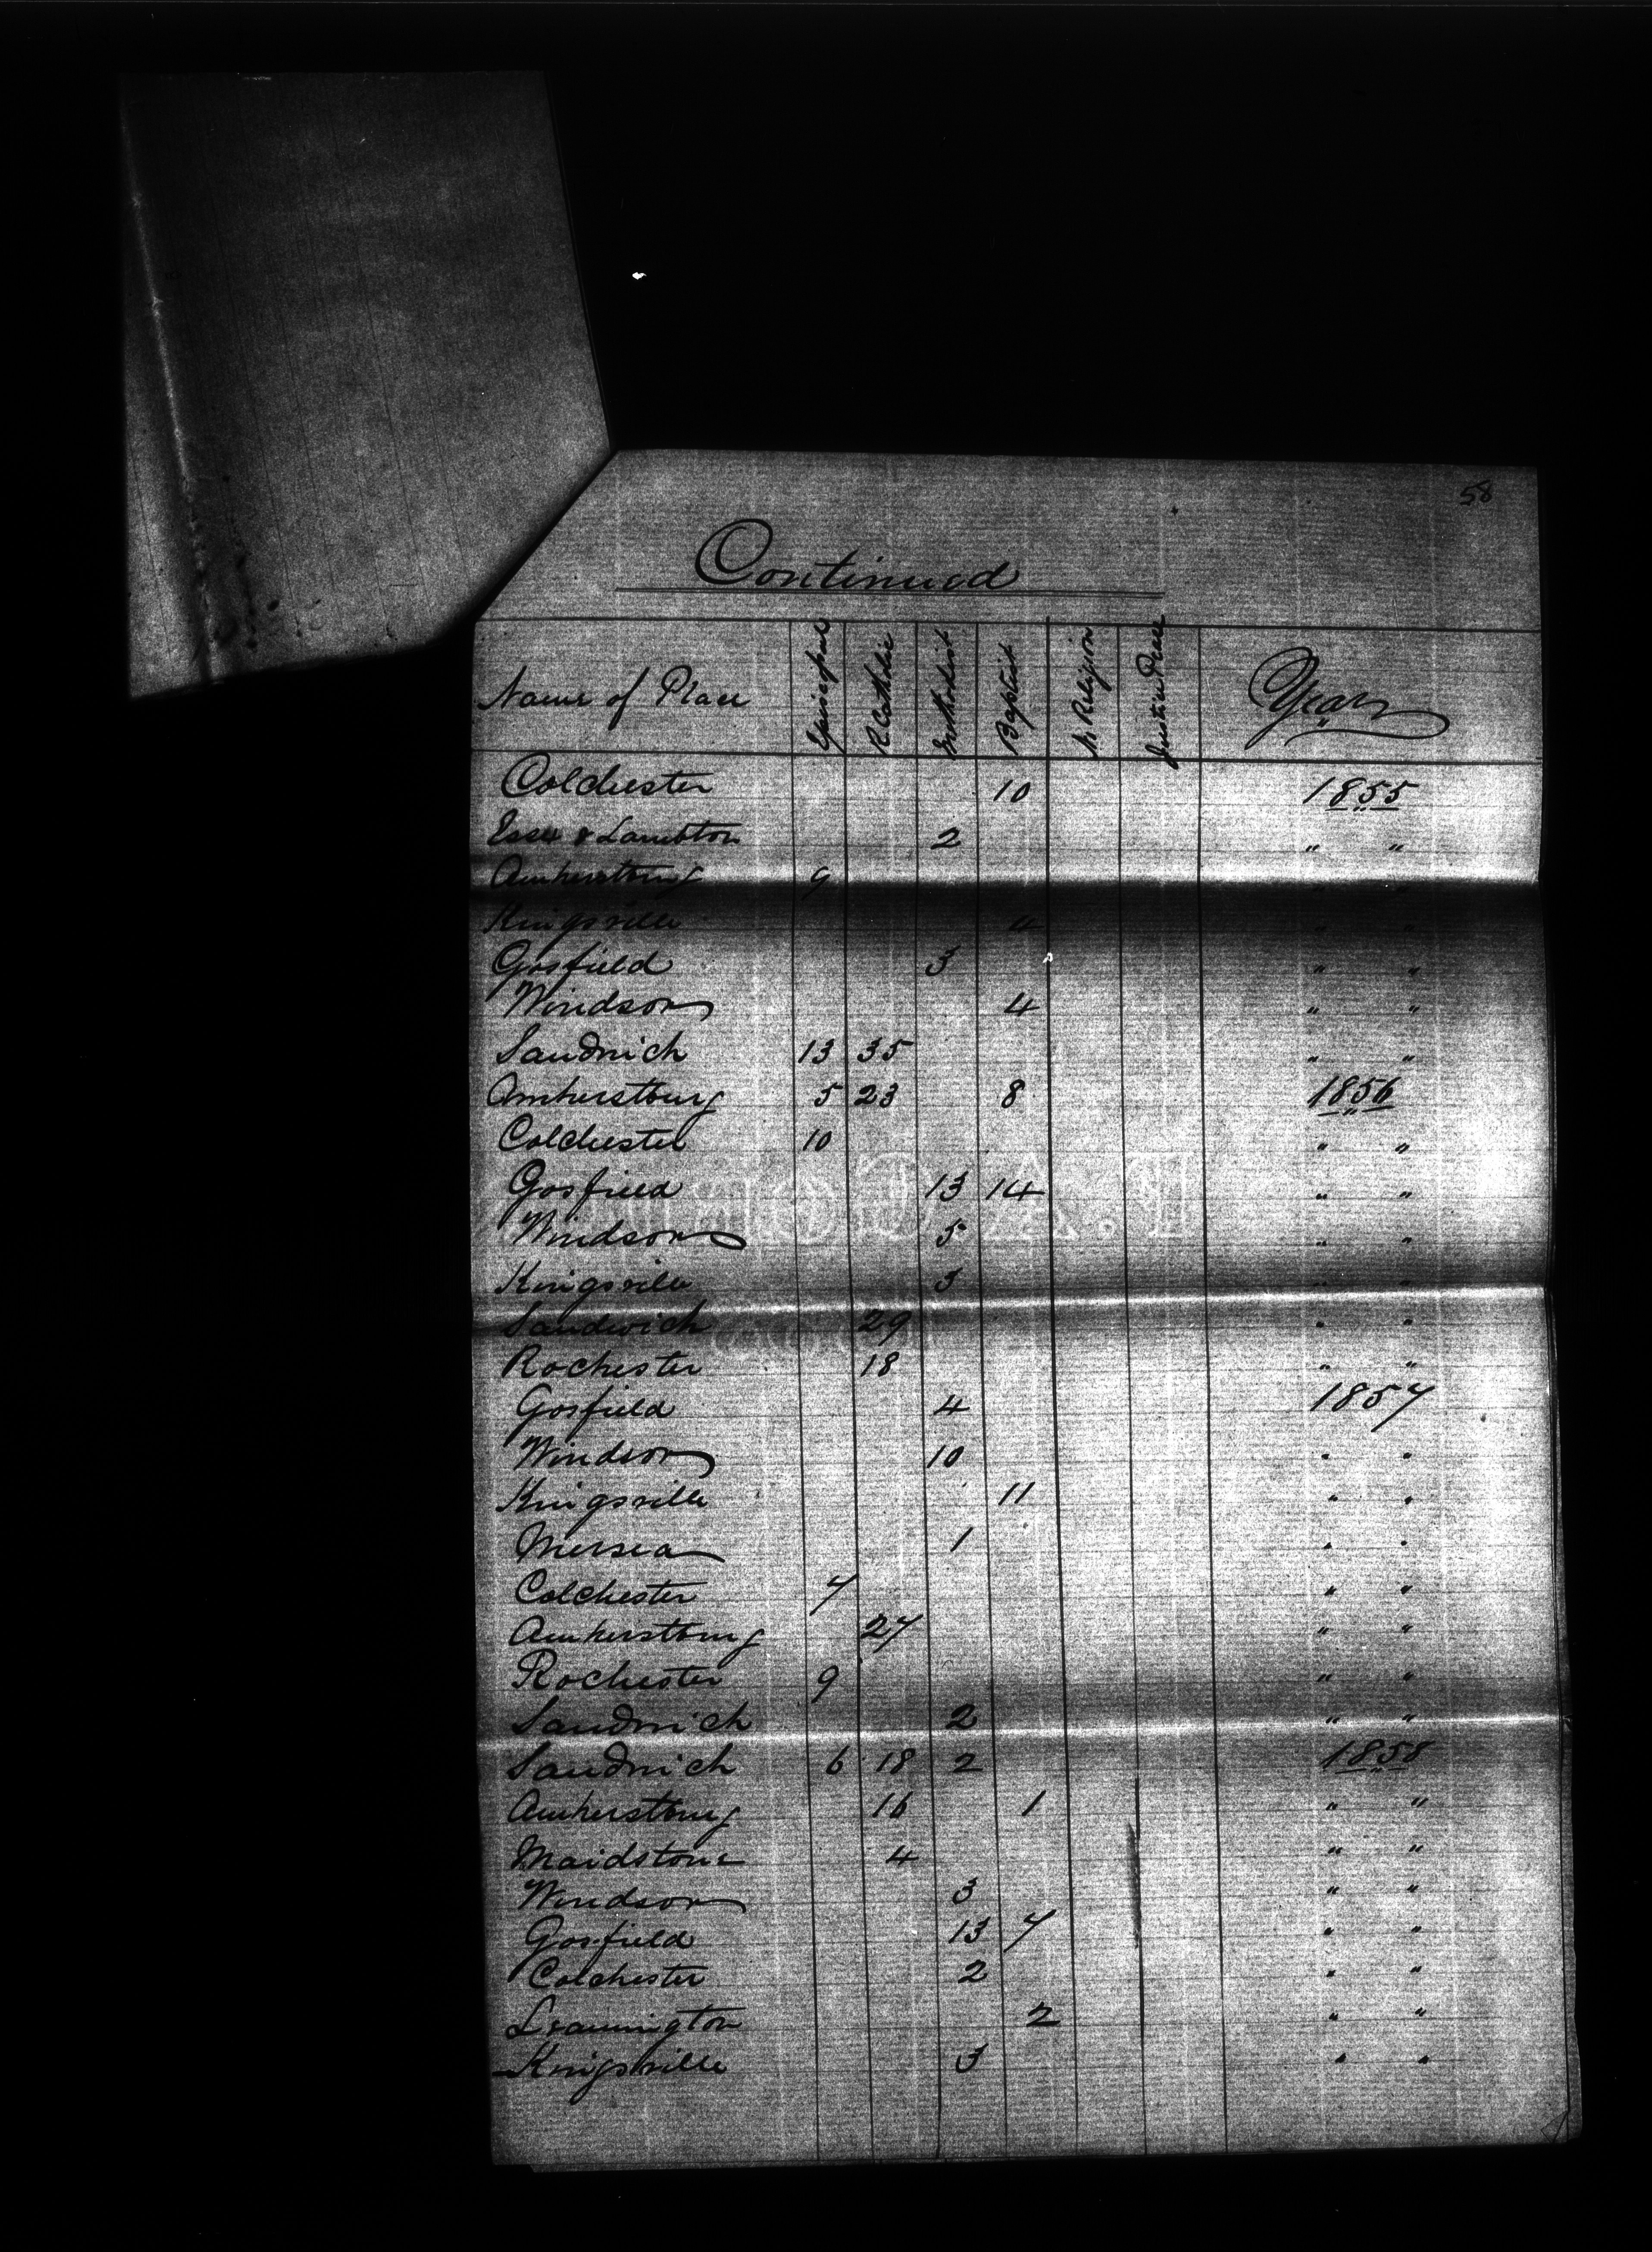 58
Continued
Name of Place Episcopal R. Catholic Methodist Baptist No Religion Justice Peace Year
Colchester 10 1855
Essex & Lambton 2 " "
Amherstburg 9 " "
Kingsville 4 " "
Gosfield 3 " "
Windsor 4 " "
Sandwich 13 35 " "
Amherstburg 5 23 8 1856
Colchester 10 " "
Gosfield 13 14 " "
Windsor 5 " "
Kingsville 3 " "
Sandwich 29 " "
Rochester 18 " "
Gosfield 4 1857
Windsor 10 " "
Kingsville 11 " "
Mersea 1 " "
Colchester 7 " "
Amherstburg 27 " "
Rochester 9 " "
Sandwich 2 " "
Sandwich 6 18 2 1858
Amherstburg 16 1 " "
Maidstone 4 " "
Windsor 3 " "
Gosfield 13 7 " "
Colchester 2 " "
Leamington 2 " "
Kingsville 3 " "